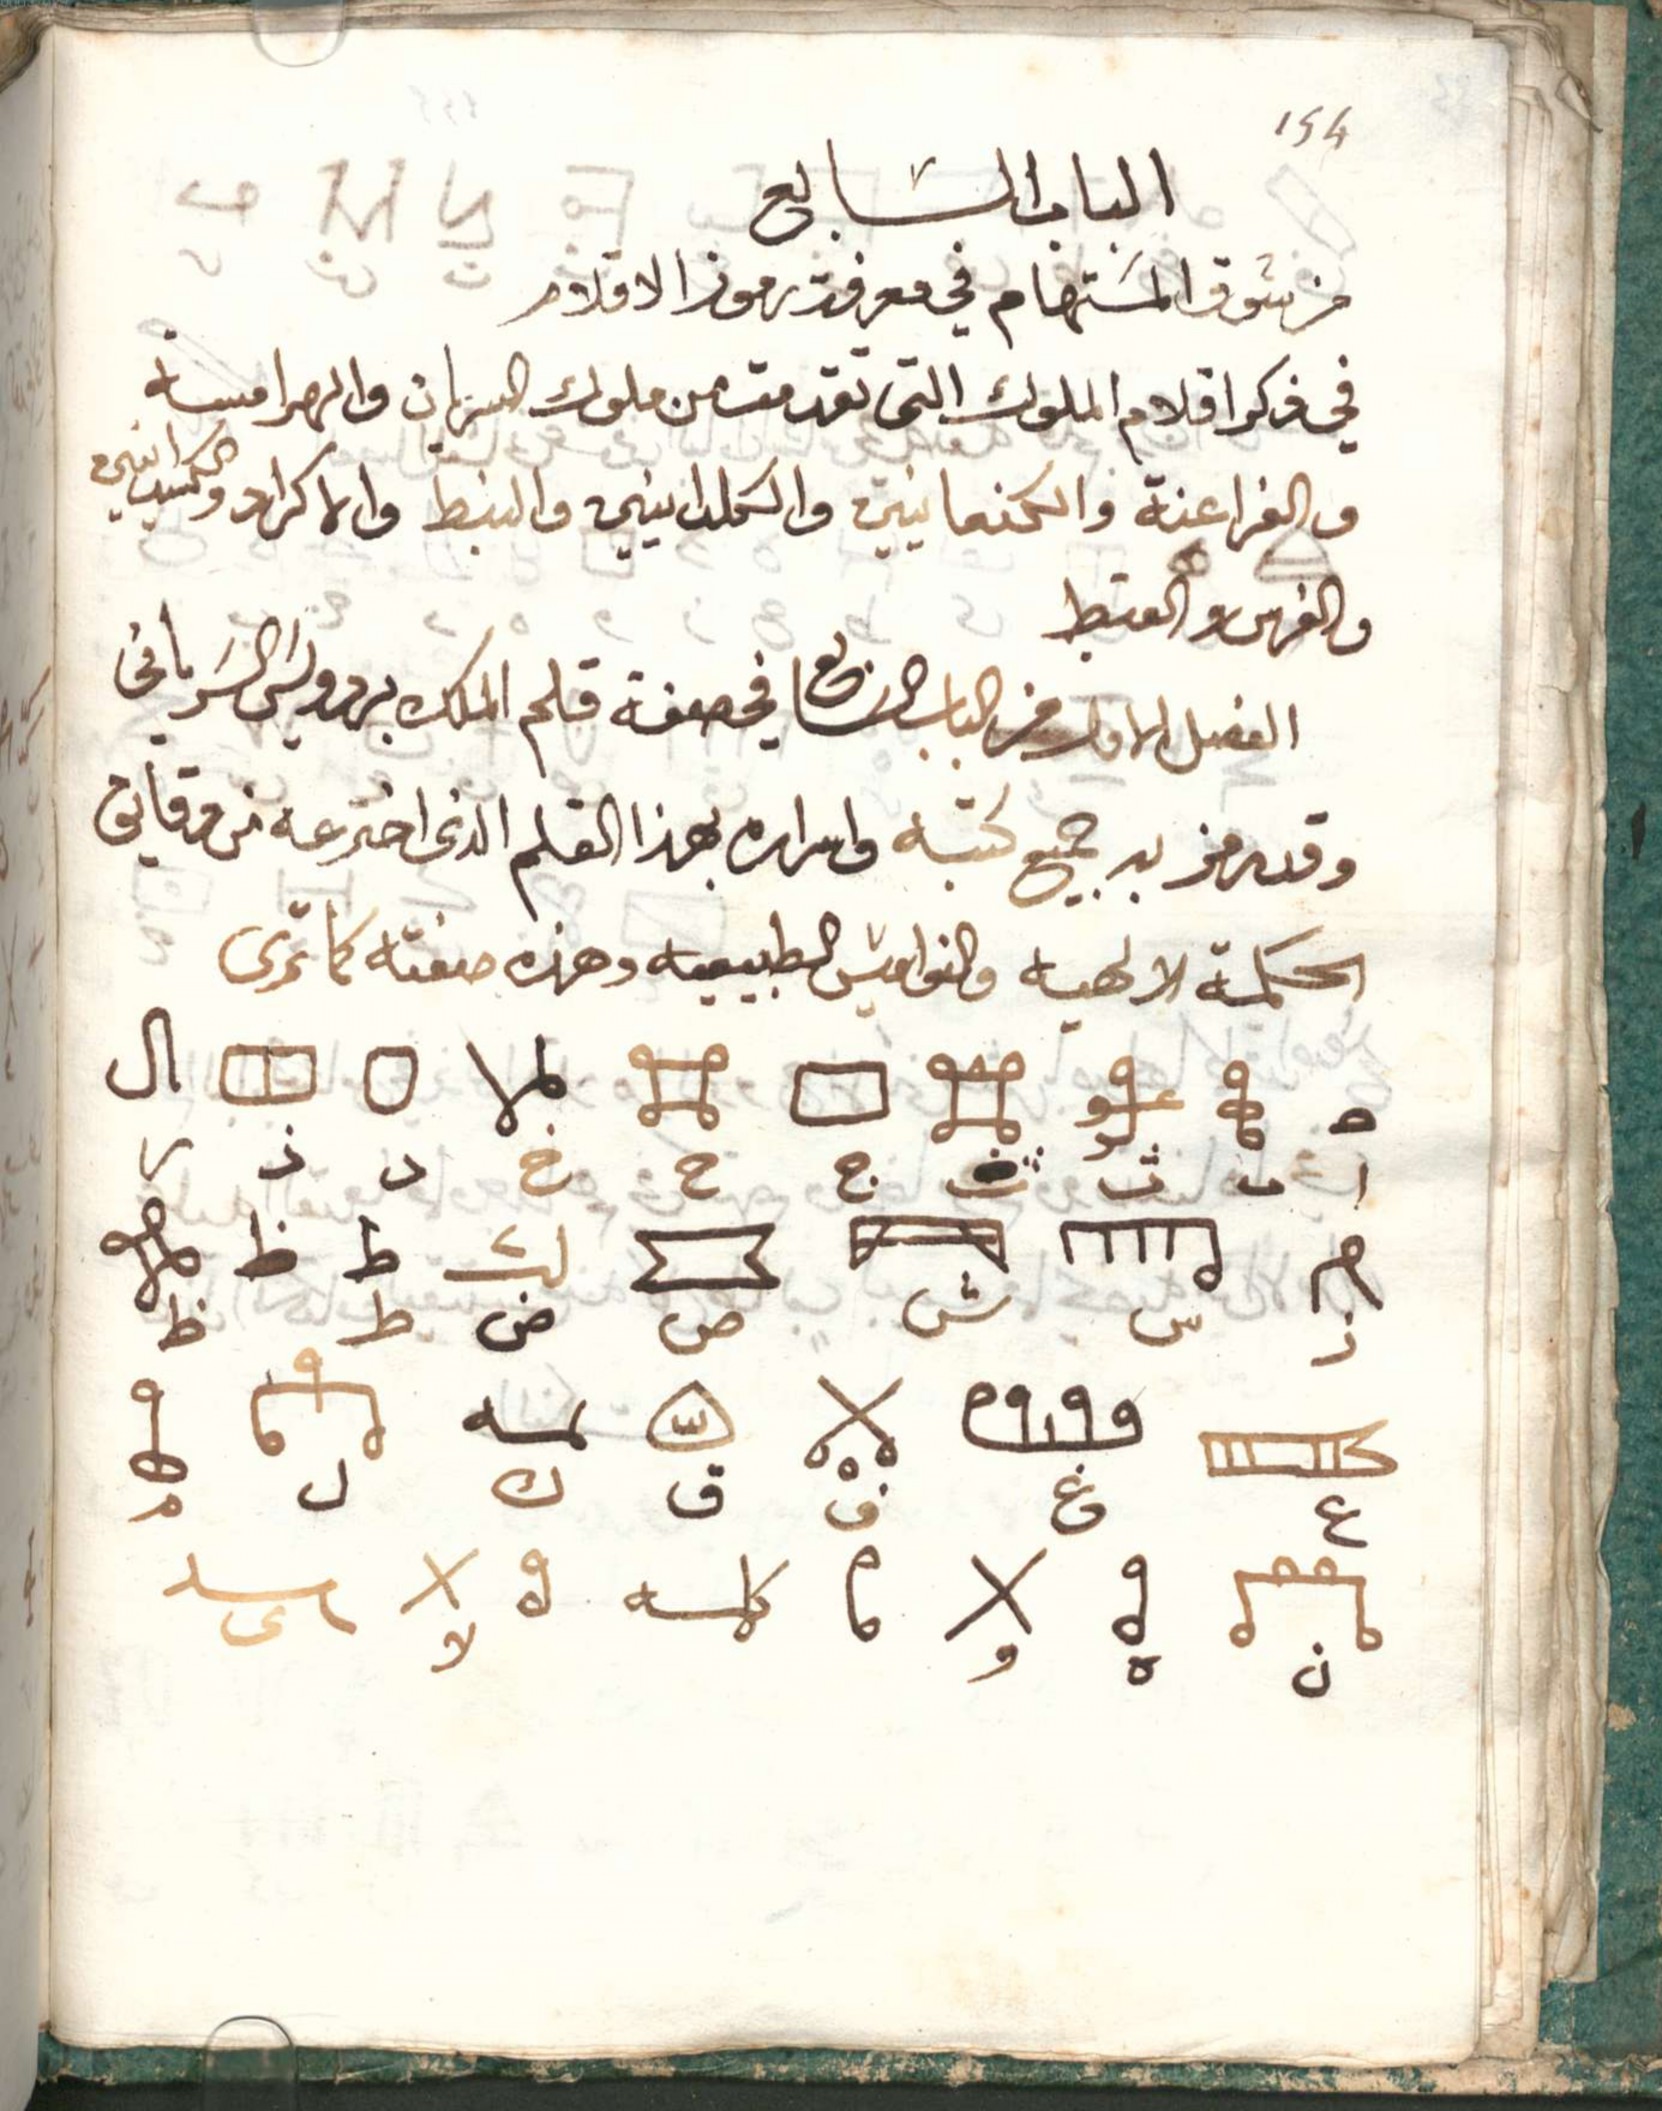 154
الباب السابع
من شوق المستهام في معرفة رموز الاقلام
في ذكر اقلام الملوك التى تقدمت من ملوك السريان والهرامسة
والفراعنة والكنعانيين والكلدانيين والنبط والاكراد والكسدانيين
والفرس والقبط
الفصل الاول من الباب السابع في صفة قلم الملك بردويس السريانى
وقد رمز به جميع كتبه واسراره بهذا القلم الذى اخترعه من دقايق
الحكمة الالهيه والنواميس الطبيعيه وهذه صفته كما ترى
ا ب ت ث ج ح خ د ذ ر
ز س ش ص ض ط ظ
ع غ ف ق ك ل م
ن ه و لا ى